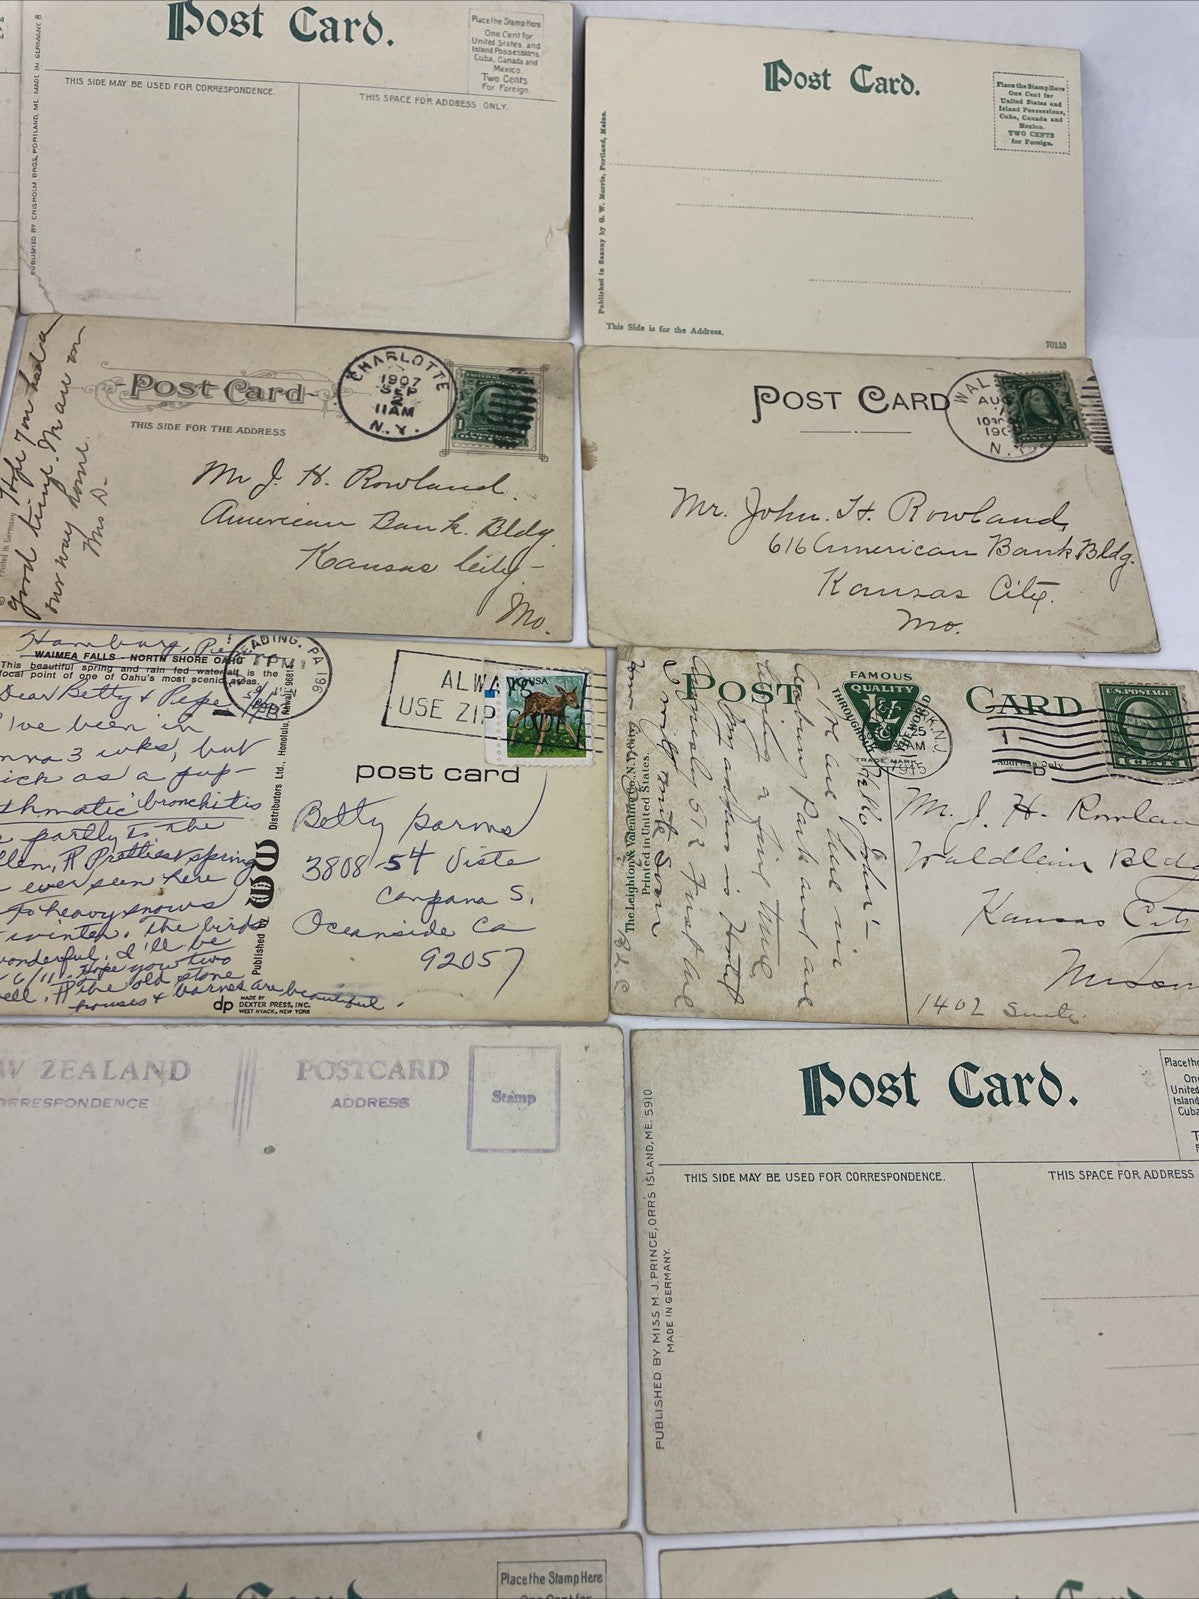 Post Card.
Place the Stamp Here
One Cent for
United States and
Island Possessions
Cuba, Canada and
Mexico.
Two Cents
For Foreign.
THIS SIDE MAY BE USED FOR CORRESPONDENCE.
THIS SPACE FOR ADDRESS ONLY.
PUBLISHED BY CHISHOLM BROS, PORTLAND, ME. MADE IN GERMANY 8
Post Card.
Place the Stamp Here
One Cent for
United States and
Island Possessions,
Cuba, Canada and
Mexico.
TWO CENTS
for Foreign.
Published in Saxony by G. W. Morris, Portland, Maine.
This Side is for the Address.
70153
Hope you had a
good time. We are on
our way home.
Mrs D-
Printed in Germany
Post Card
THIS SIDE FOR THE ADDRESS
CHARLOTTE
1907
SEP
5
11AM
N.Y.
Mr J. H. Rowland.
American Bank. Bldg.
Kansas City-
Mo.
POST CARD
WAL
AUG
1030
190
N.Y.
Mr. John. H. Rowland,
616 American Bank Bldg.
Kansas City.
Mo.
Hamburg,
WAIMEA FALLS - NORTH SHORE OAHU
This beautiful spring and rain fed waterfall is the
focal point of one of Oahu's most scenic areas.
Dear Betty &
I've been in
3 wks, but
ick as a pup-
thmatic bronchitis
partly to the
Prettiest spring
ever seen here
to heavy snows
winter. The birds
wonderful. I'll be
6/11. Hope you two
ell. The old stone
houses & barns are beautiful.
EADING, PA
PM
196
ALWAYS
USE ZIP CODE
18 USA
post card
Published by
Distributors Ltd., Honolulu, Hawaii 96814
dp MADE BY
DEXTER PRESS, INC.
WEST NYACK, NEW YORK
Betty Parms
3808-54 Vista
Campana S.
Oceanside Ca
92057
POST CARD
FAMOUS
QUALITY
THROUGHOUT THE WORLD
TRADE MARK
K, N.J.
25
AM
1915
U.S. POSTAGE
1 CENT 1
Address Only
The Leighton & Valentine Co., N.Y. City.
Printed in United States.
My dear John-
We are here in
Asbury Park and are
having a fine time
Mr. J. H. Rowlan
Waldheim Bldg
Kansas City
Missou
1402
W ZEALAND
ORRESPONDENCE
POSTCARD
ADDRESS
Stamp
Post Card.
Place the
On
United
Island
Cuba
T
F
THIS SIDE MAY BE USED FOR CORRESPONDENCE.
THIS SPACE FOR ADDRESS
PUBLISHED BY MISS M. J. PRINCE, ORR'S ISLAND, ME. 5910
MADE IN GERMANY.
Post Card
Place the Stamp Here
One Cent for
Post Card